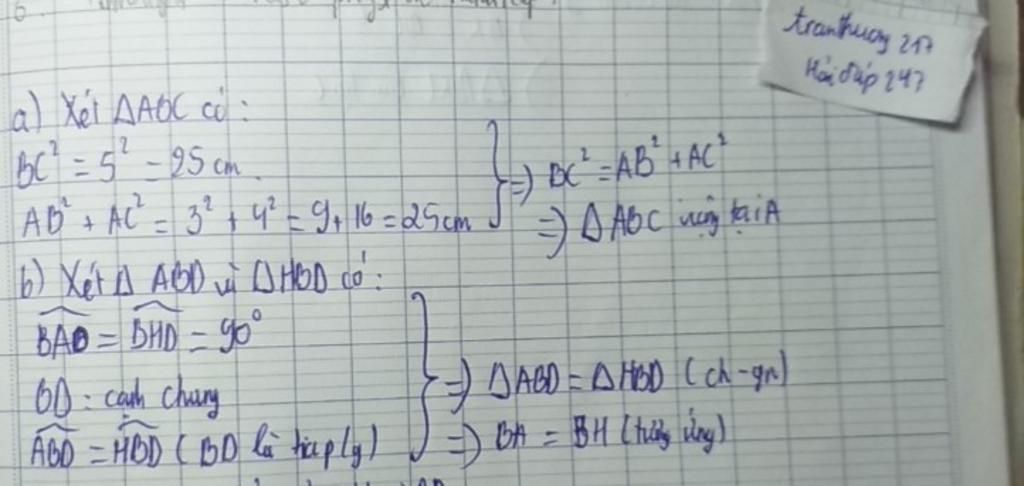 tranthuong 217
Hỏi đáp 247
a) Xét ΔABC có:
BC² = 5² = 25 cm
AB² + AC² = 3² + 4² = 9 + 16 = 25cm
⇒ BC² = AB² + AC²
⇒ ΔABC vuông tại A
b) Xét Δ ABD và ΔHBD có:
BAD = BHD = 90°
BD : cạnh chung
ABD = HBD ( BD là tia p/g)
⇒ ΔABD = ΔHBD ( ch - gn)
⇒ BA = BH (tương ứng)